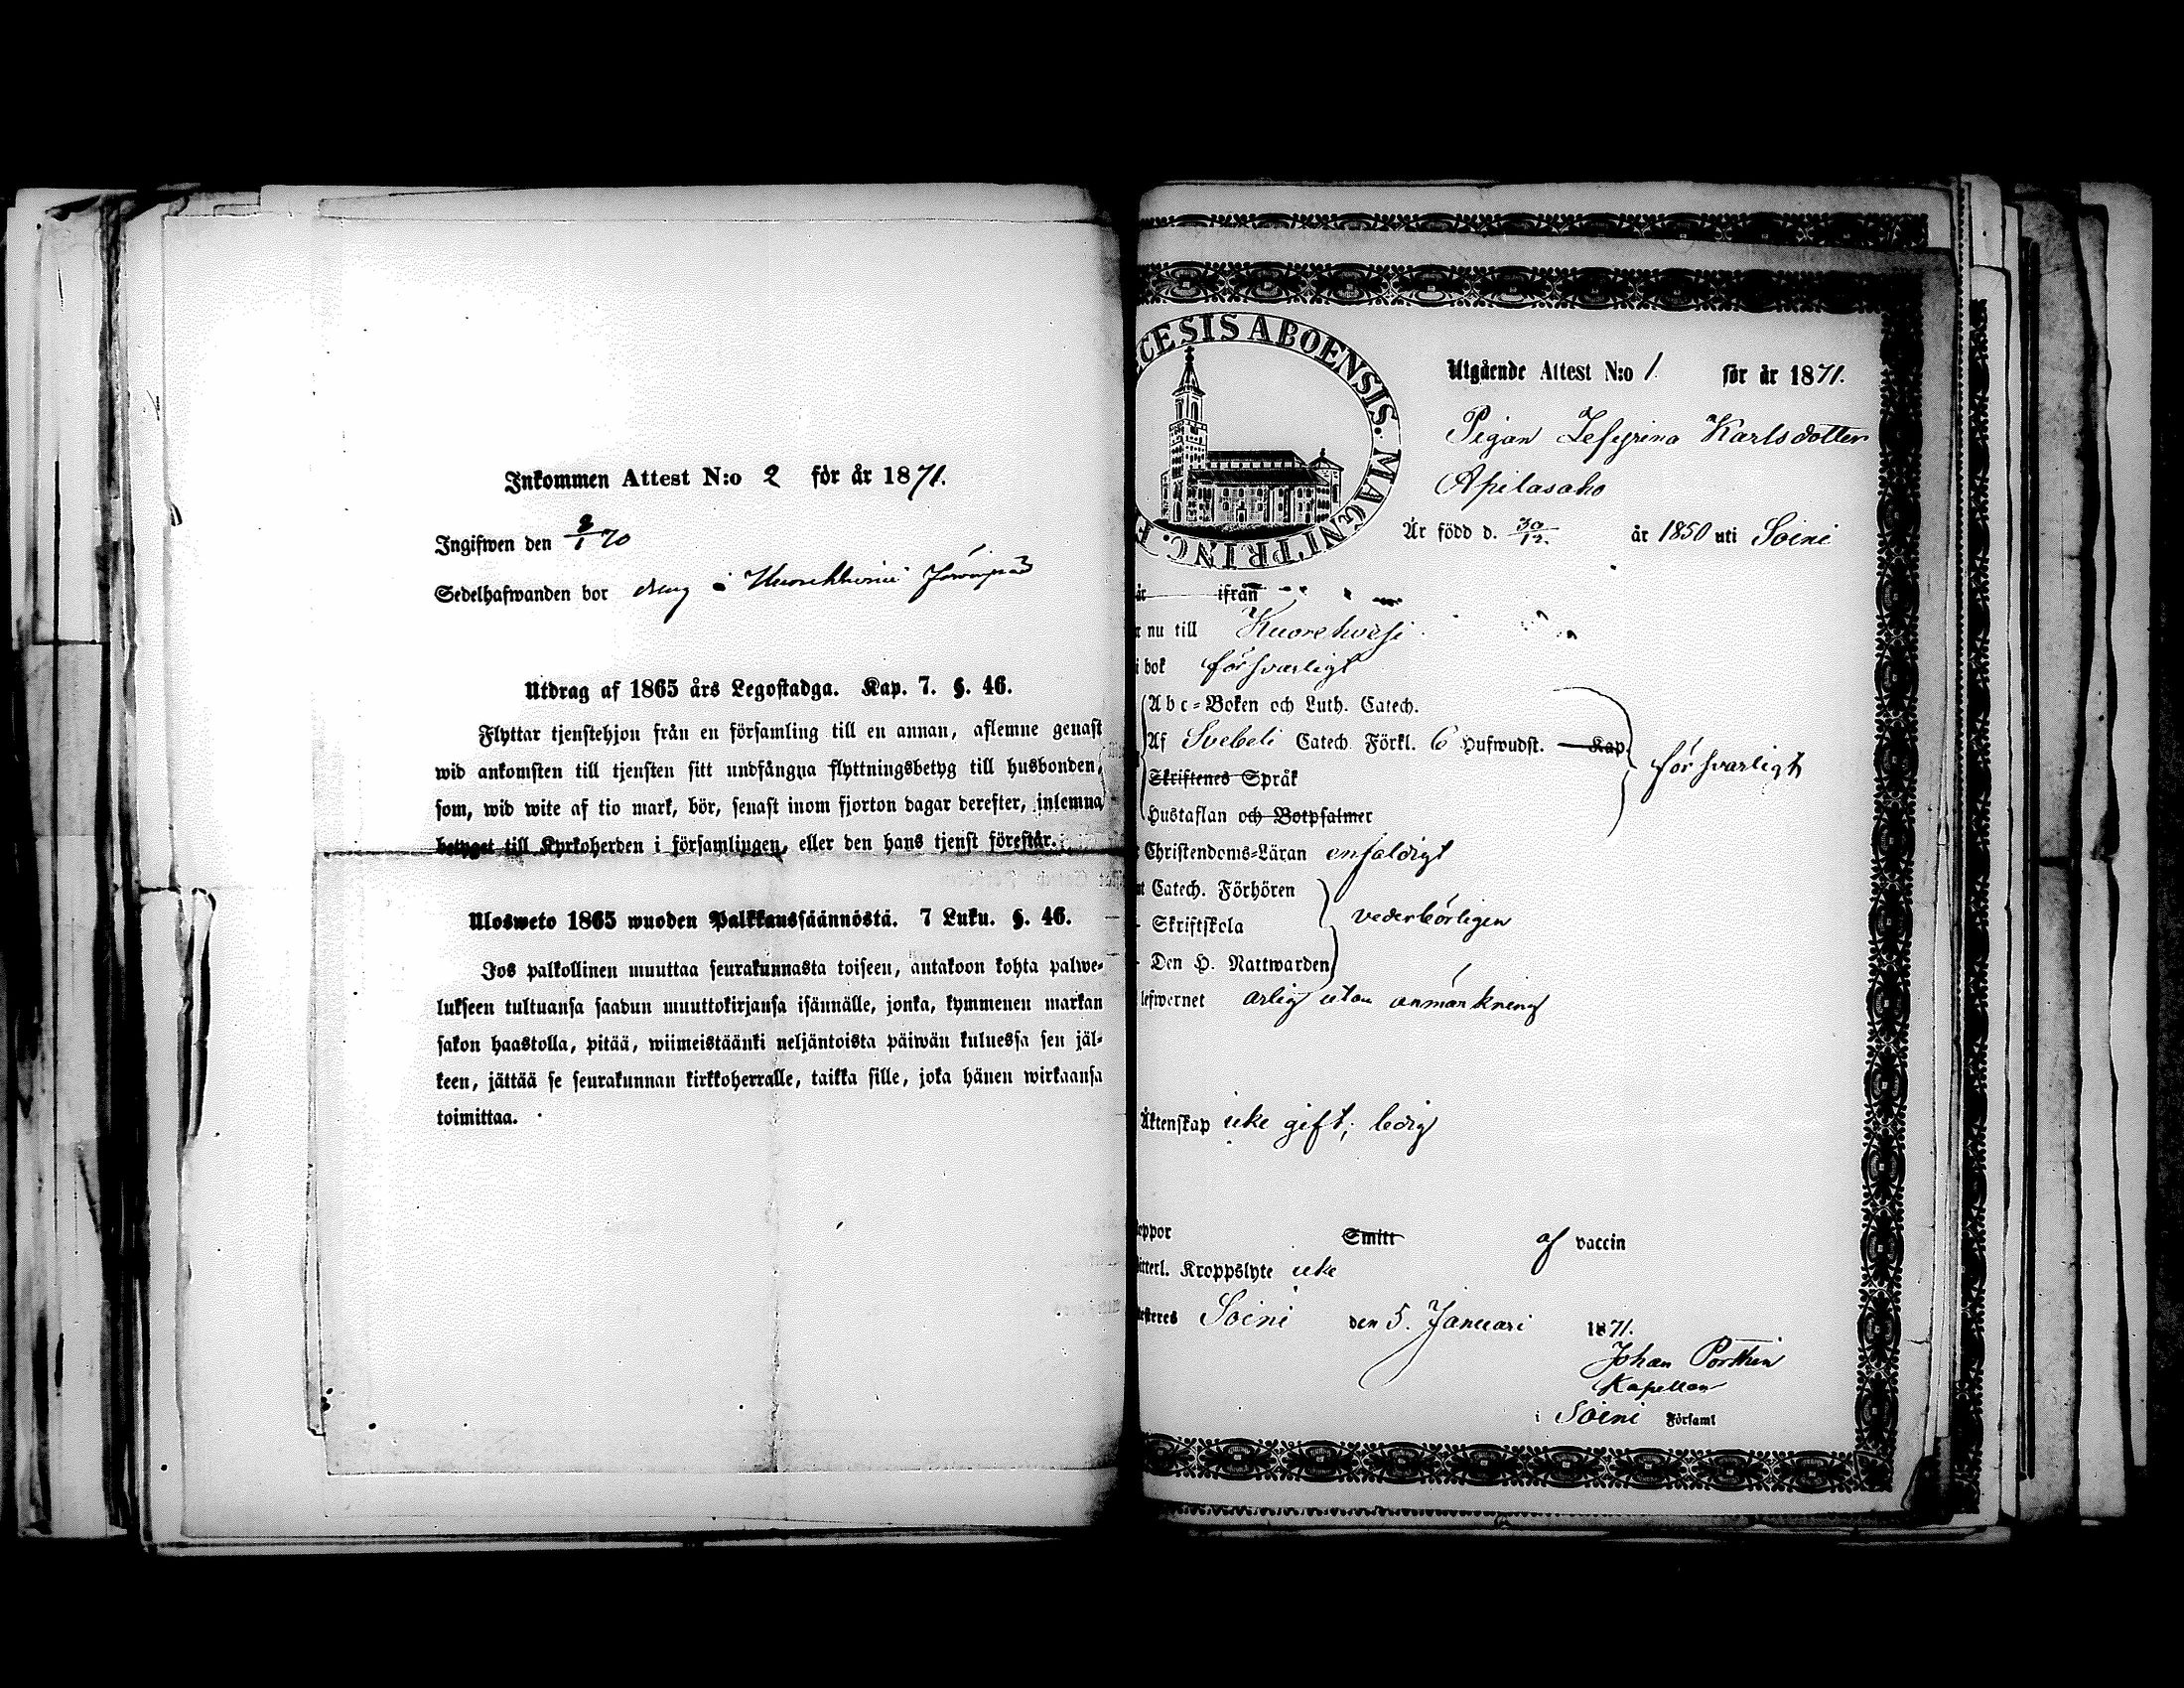 Inkommen Attest N:o 2 för år 1871.
Ingifwen den 8/1 70
Sedelhafwanden bor
Utdrag af 1865 års Legostadga. Kap. 7. §. 46.
Flyttar tjenstehjon från en församling till en annan, aflemne genast
wid ankomsten till tjensten sitt undfångna flyttningsbetyg till husbonden,
som, wid wite af tio mark, bör, senast inom fjorton dagar derefter, inlemna
betyget till Kyrkoherden i församlingen, eller den hans tjenst förestår.
Ulosweto 1865 wuoden Palkkaussäännöstä. 7 Luku. §. 46.
Jos palkollinen muuttaa seurakunnasta toiseen, antakoon kohta palwe-
lukseen tultuansa saadun muuttokirjansa isännälle, jonka, kymmenen markan
sakon haastolla, pitää, wiimeistäänki neljäntoista päiwän kuluessa sen jäl-
keen, jättää se seurakunnan kirkkoherralle, taikka sille, joka hänen wirkaansa
toimittaa.
CESIS ABOENSIS. MAGNI PRINC. F
Utgående Attest N:o 1. för år 1871.
Pigan Zefyrina Karlsdotter
Apilasaho
Är född d. 30/12. år 1850 uti Soini
är ifrån
r nu till Kuorehvesi
i bok försvarligt
Abc-Boken och Luth. Catech.
Af Svebeli Catech. Förkl. 6 Hufwudst. Kap.
försvarligt
Skriftenes Språk
Hustaflan och Botpsalmer
Christendoms-Läran enfaldigt
t Catech. Förhören
Skriftskola
vederbörligen
Den H. Nattwarden
lefwernet ärligt utan anmärkning
Äktenskap icke gift; ledig
oppor Smitt af vaccin
itterl. Kroppslyte icke
testeres Soini den 5. Januari 1871.
Johan Porthin
Kapellan
i Soini Församl